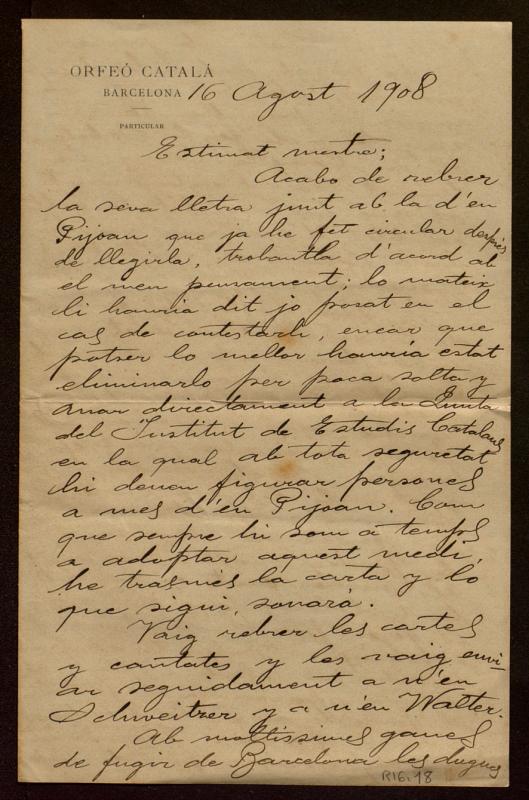 ORFEÓ CATALÁ
BARCELONA 16 Agost 1908
PARTICULAR
Estimat mestre;
Acabo de rebrer
la seva lletra junt ab la d'en
Pijoan que ja he fet circular després
de llegirla, trobantla d'acord ab
el meu pensament; lo mateix
li hauria dit jo posat en el
cas de contestarli, encar que
potser lo mellor hauria estat
eliminarlo per poca solta y
anar directament a la Junta
del Institut de Estudis Catalans
en la qual ab tota seguretat
hi deuen figurar persones
a mes d'en Pijoan. Com
que sempre hi som a temps
a adoptar aquest medi,
he trasmés la carta y lo
que sigui, sonará.
Vaig rebrer les cartes
y cantates y les vaig envi-
ar seguidament a n'en
Schweitzer y a n'en Walter.
Ab moltissimes ganes
de fugir de Barcelona les dugues
R16.18